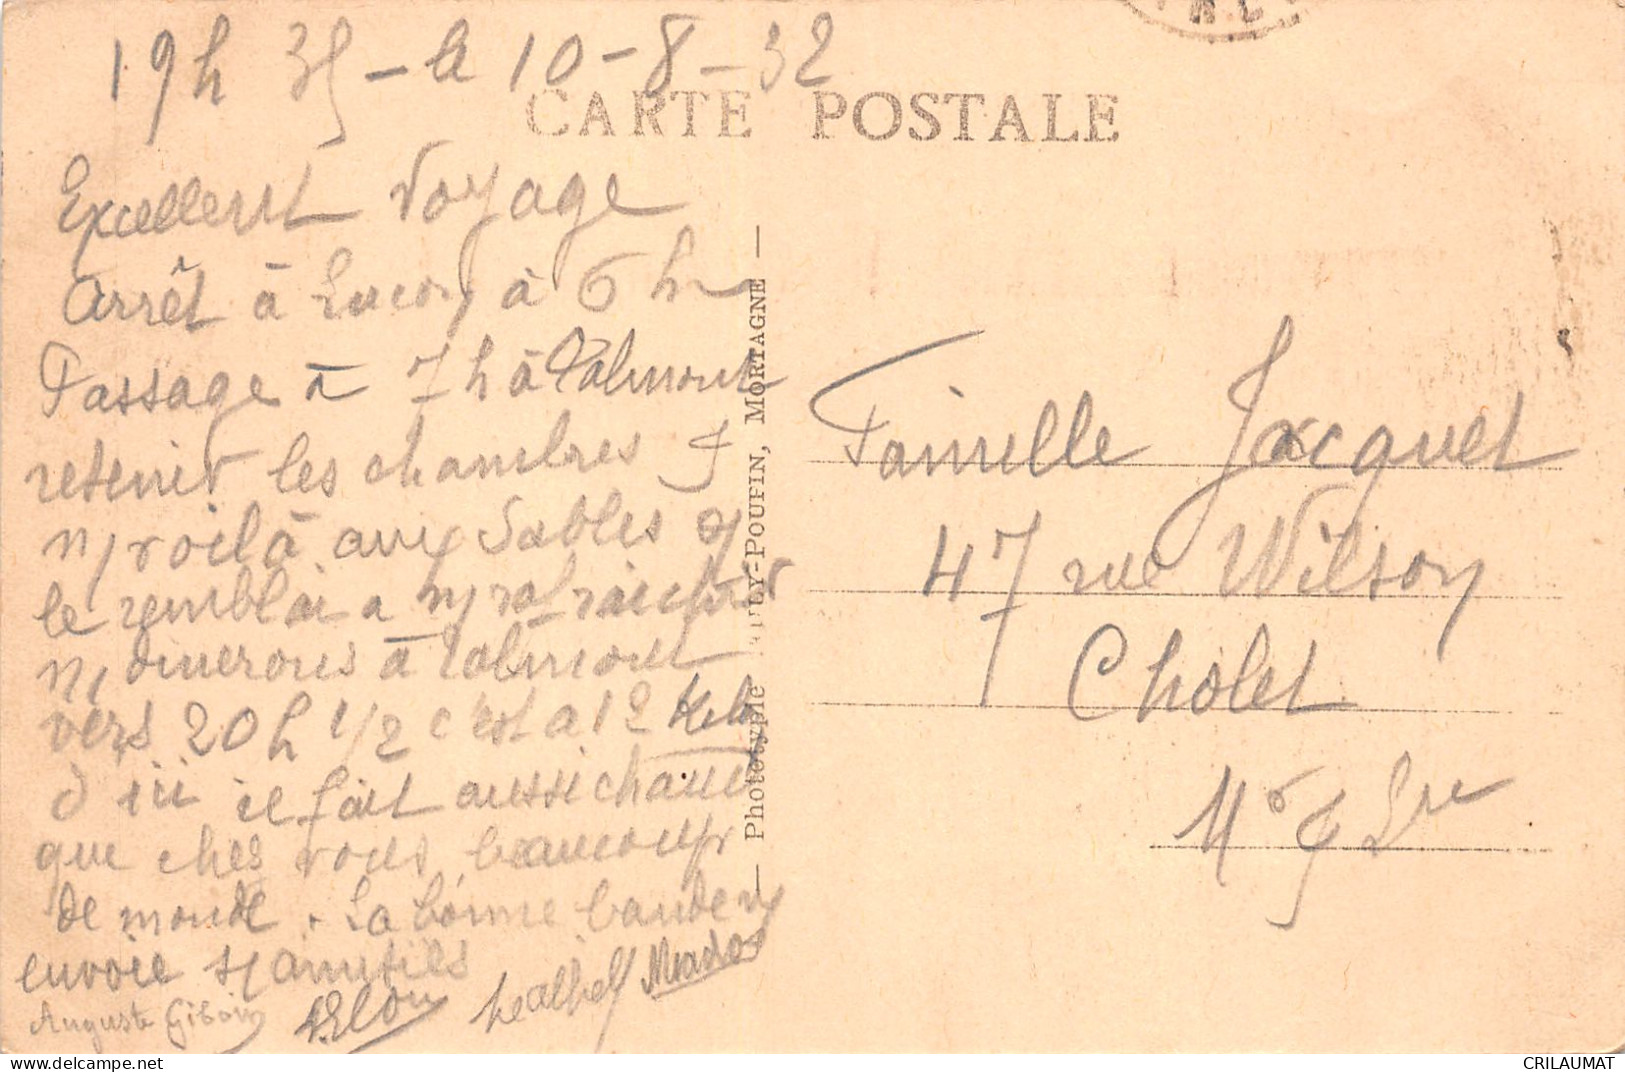 19h 35 - a 10-8-32
CARTE POSTALE
Excellent voyage
Arrêt à Luçon à 6 h
Passage à 7 h à Talmont
retenir les chambres &
n/ voilà aux Sables &
le remblai a n/ rafraichir
n/ dinerons à Talmont
vers 20 h 1/2 c'est a 12 Kilo
d'ici il fait aussi chaud
que chez vous, beaucoup
de monde. La bonne bande n/
envoie ses amitiés
Auguste
Phototypie POUPIN, MORTAGNE
Famille Jacquet
47 rue Wilson
Cholet
M & L re
CRILAUMAT